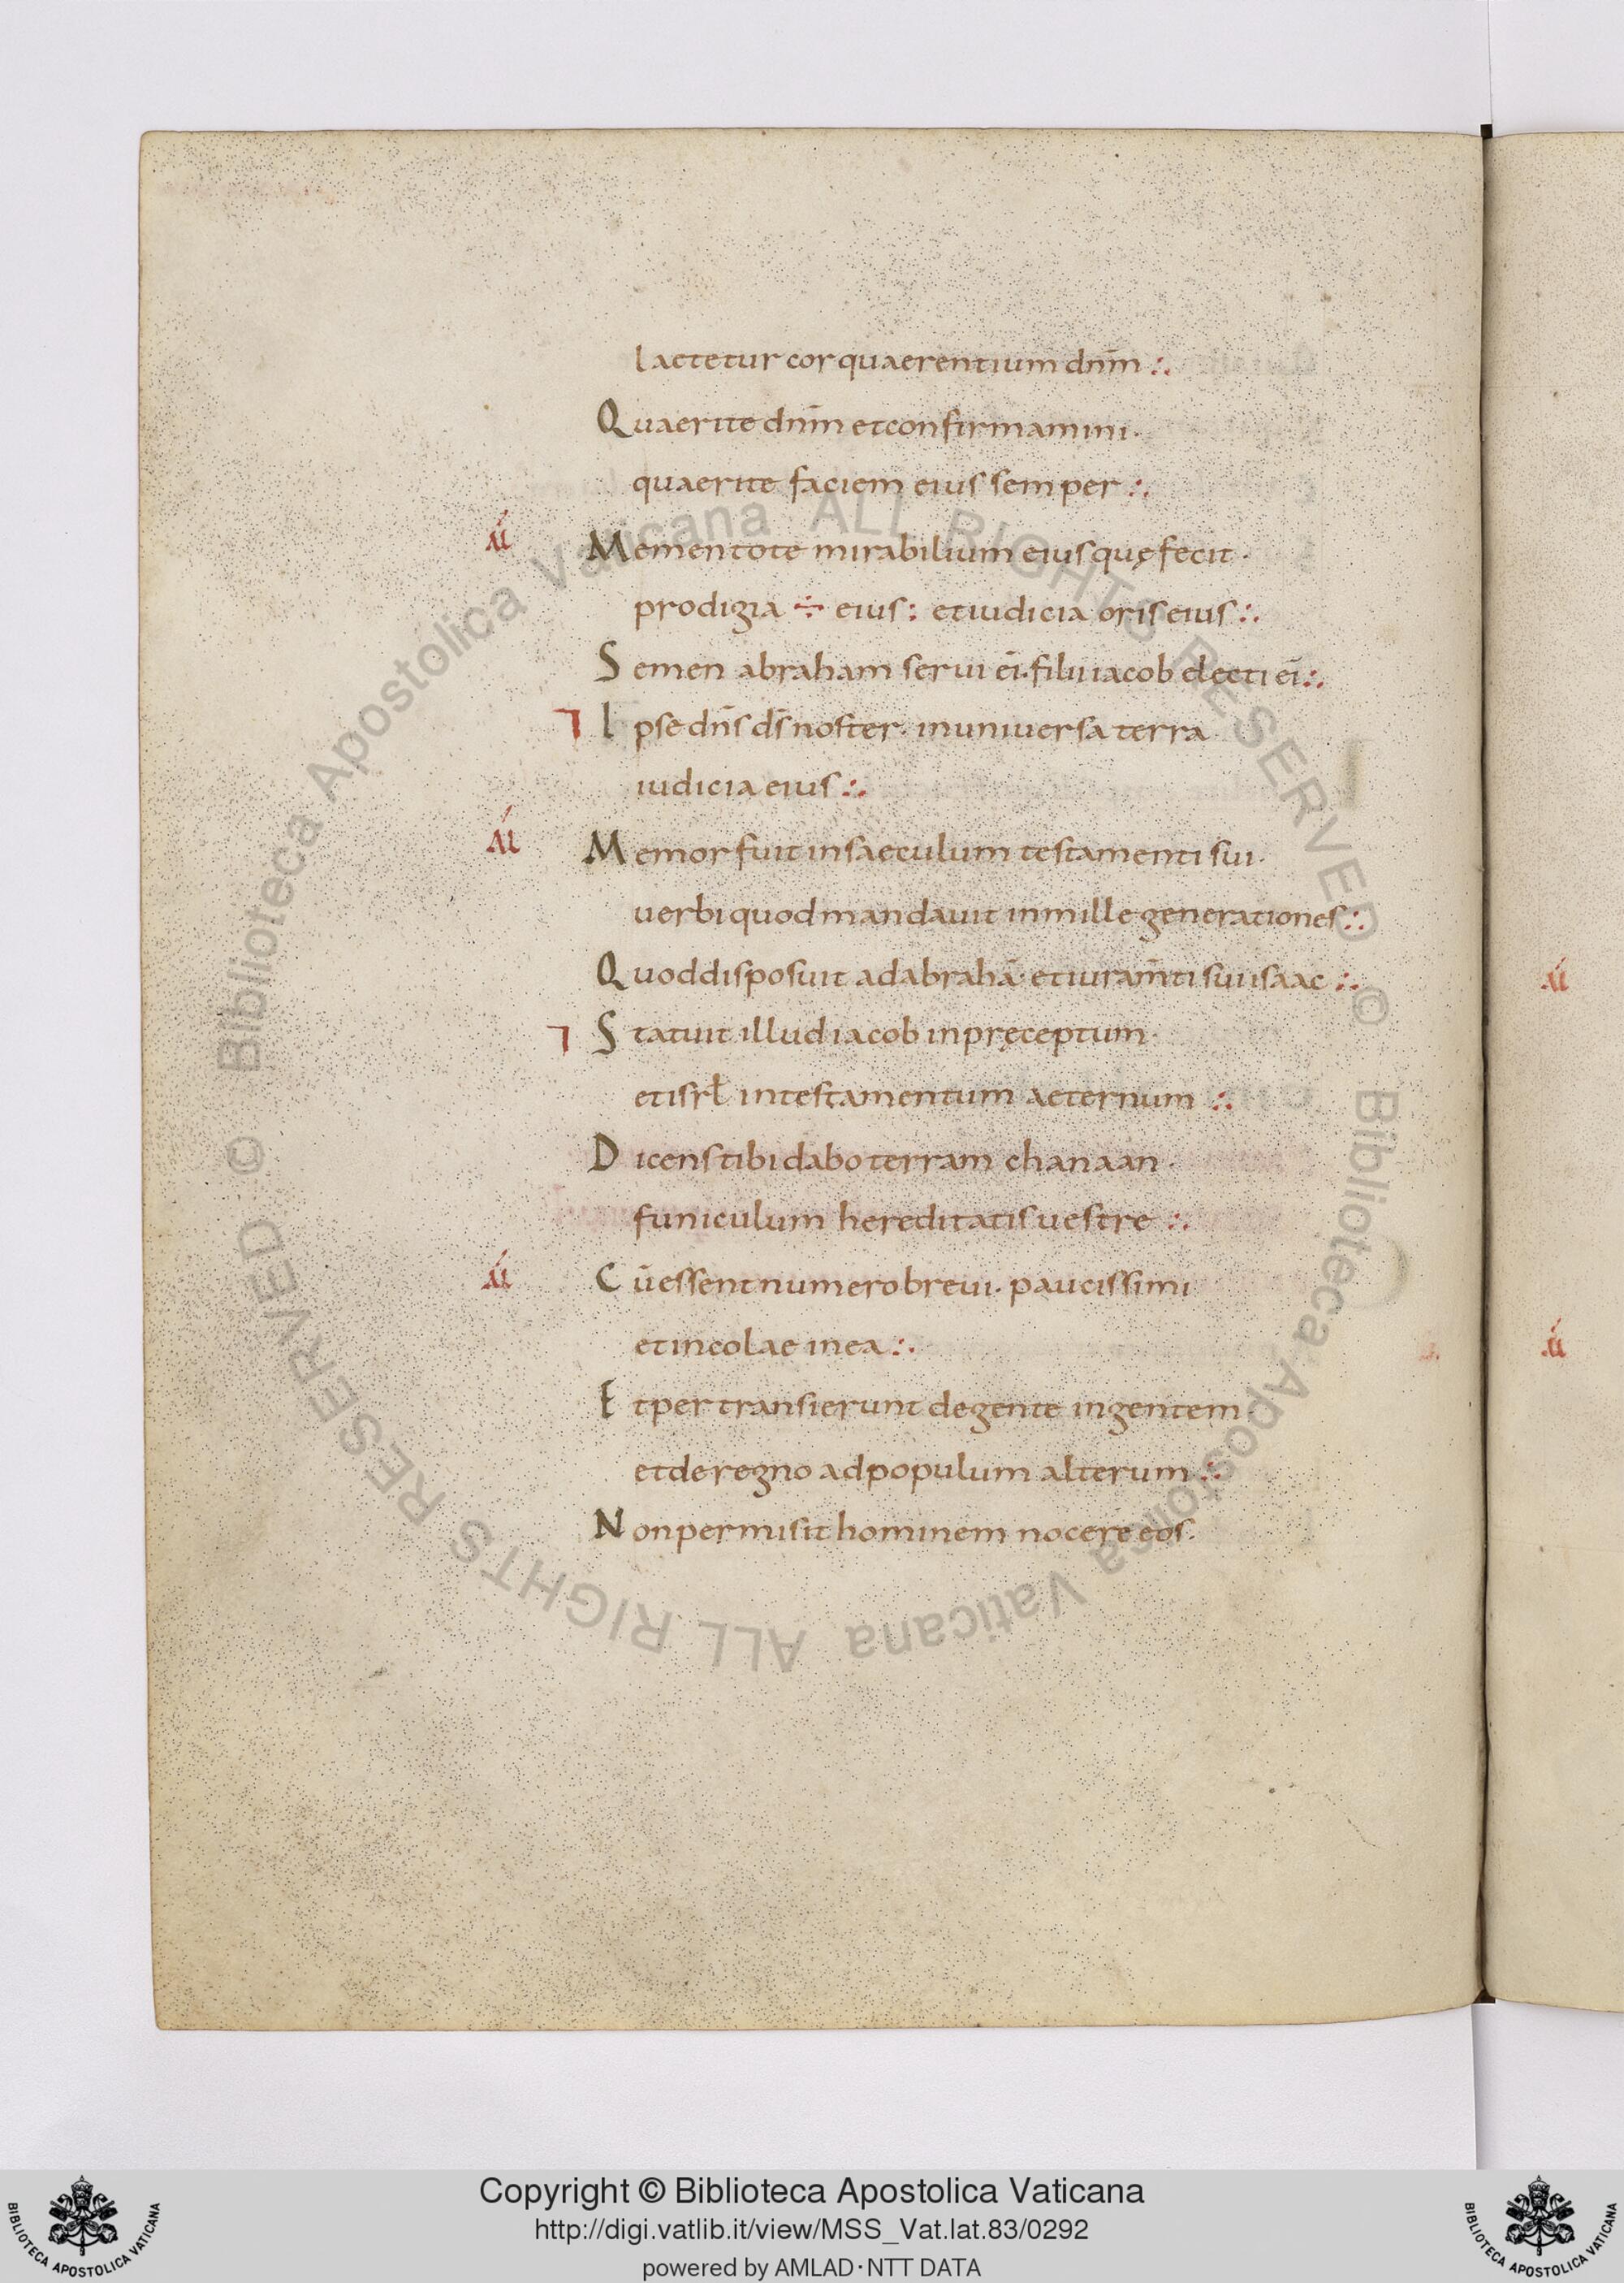 laetetur cor quaerentium dnm̄ :.
Quaerite dnm̄ et confirmamini·
quaerite faciem eius semper :.
Mementote mirabilium eius quę fecit·
prodigia ÷ eius : et iudicia oris eius :.
Semen abraham serui eī· filii iacob electi eī :.
Ipse dn̄s ds̄ noster· in uniuersa terra
iudicia eius :.
Memor fuit in saeculum testamenti sui·
uerbi quod mandauit in mille generationes :.
Quod disposuit ad abrahā· et iuram̄ti sui isaac :.
Statuit illud iacob in pręceptum·
et isrl̄ in testamentum aeternum :.
Dicens tibi dabo terram chanaan·
funiculum hereditatis uestre :.
Cū essent numero breui· paucissimi
et incolae in ea :.
Et pertransierunt de gente in gentem·
et de regno ad populum alterum :.
Non permisit hominem nocere eos·
© Biblioteca Apostolica Vaticana ALL RIGHTS RESERVED
© Biblioteca Apostolica Vaticana ALL RIGHTS RESERVED
Copyright © Biblioteca Apostolica Vaticana
http://digi.vatlib.it/view/MSS_Vat.lat.83/0292
powered by AMLAD·NTT DATA
BIBLIOTECA APOSTOLICA VATICANA
BIBLIOTECA APOSTOLICA VATICANA